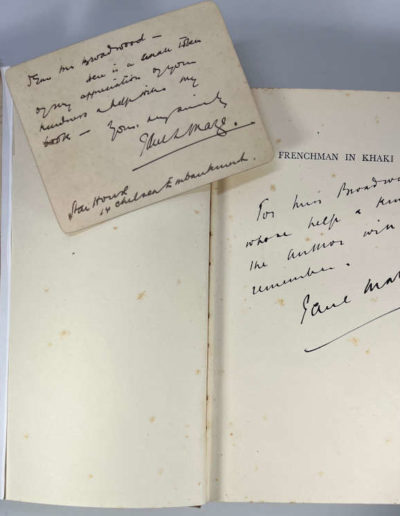 Dear Miss Broadwood –
here is a small token
of my appreciation of your
kindness & help with my
book – Yours very sincerely
Paul Maze.
Star House
14 Chelsea Embankment.
FRENCHMAN IN KHAKI
For Miss Broadwo
whose help &
the author will
remember.
Paul Ma